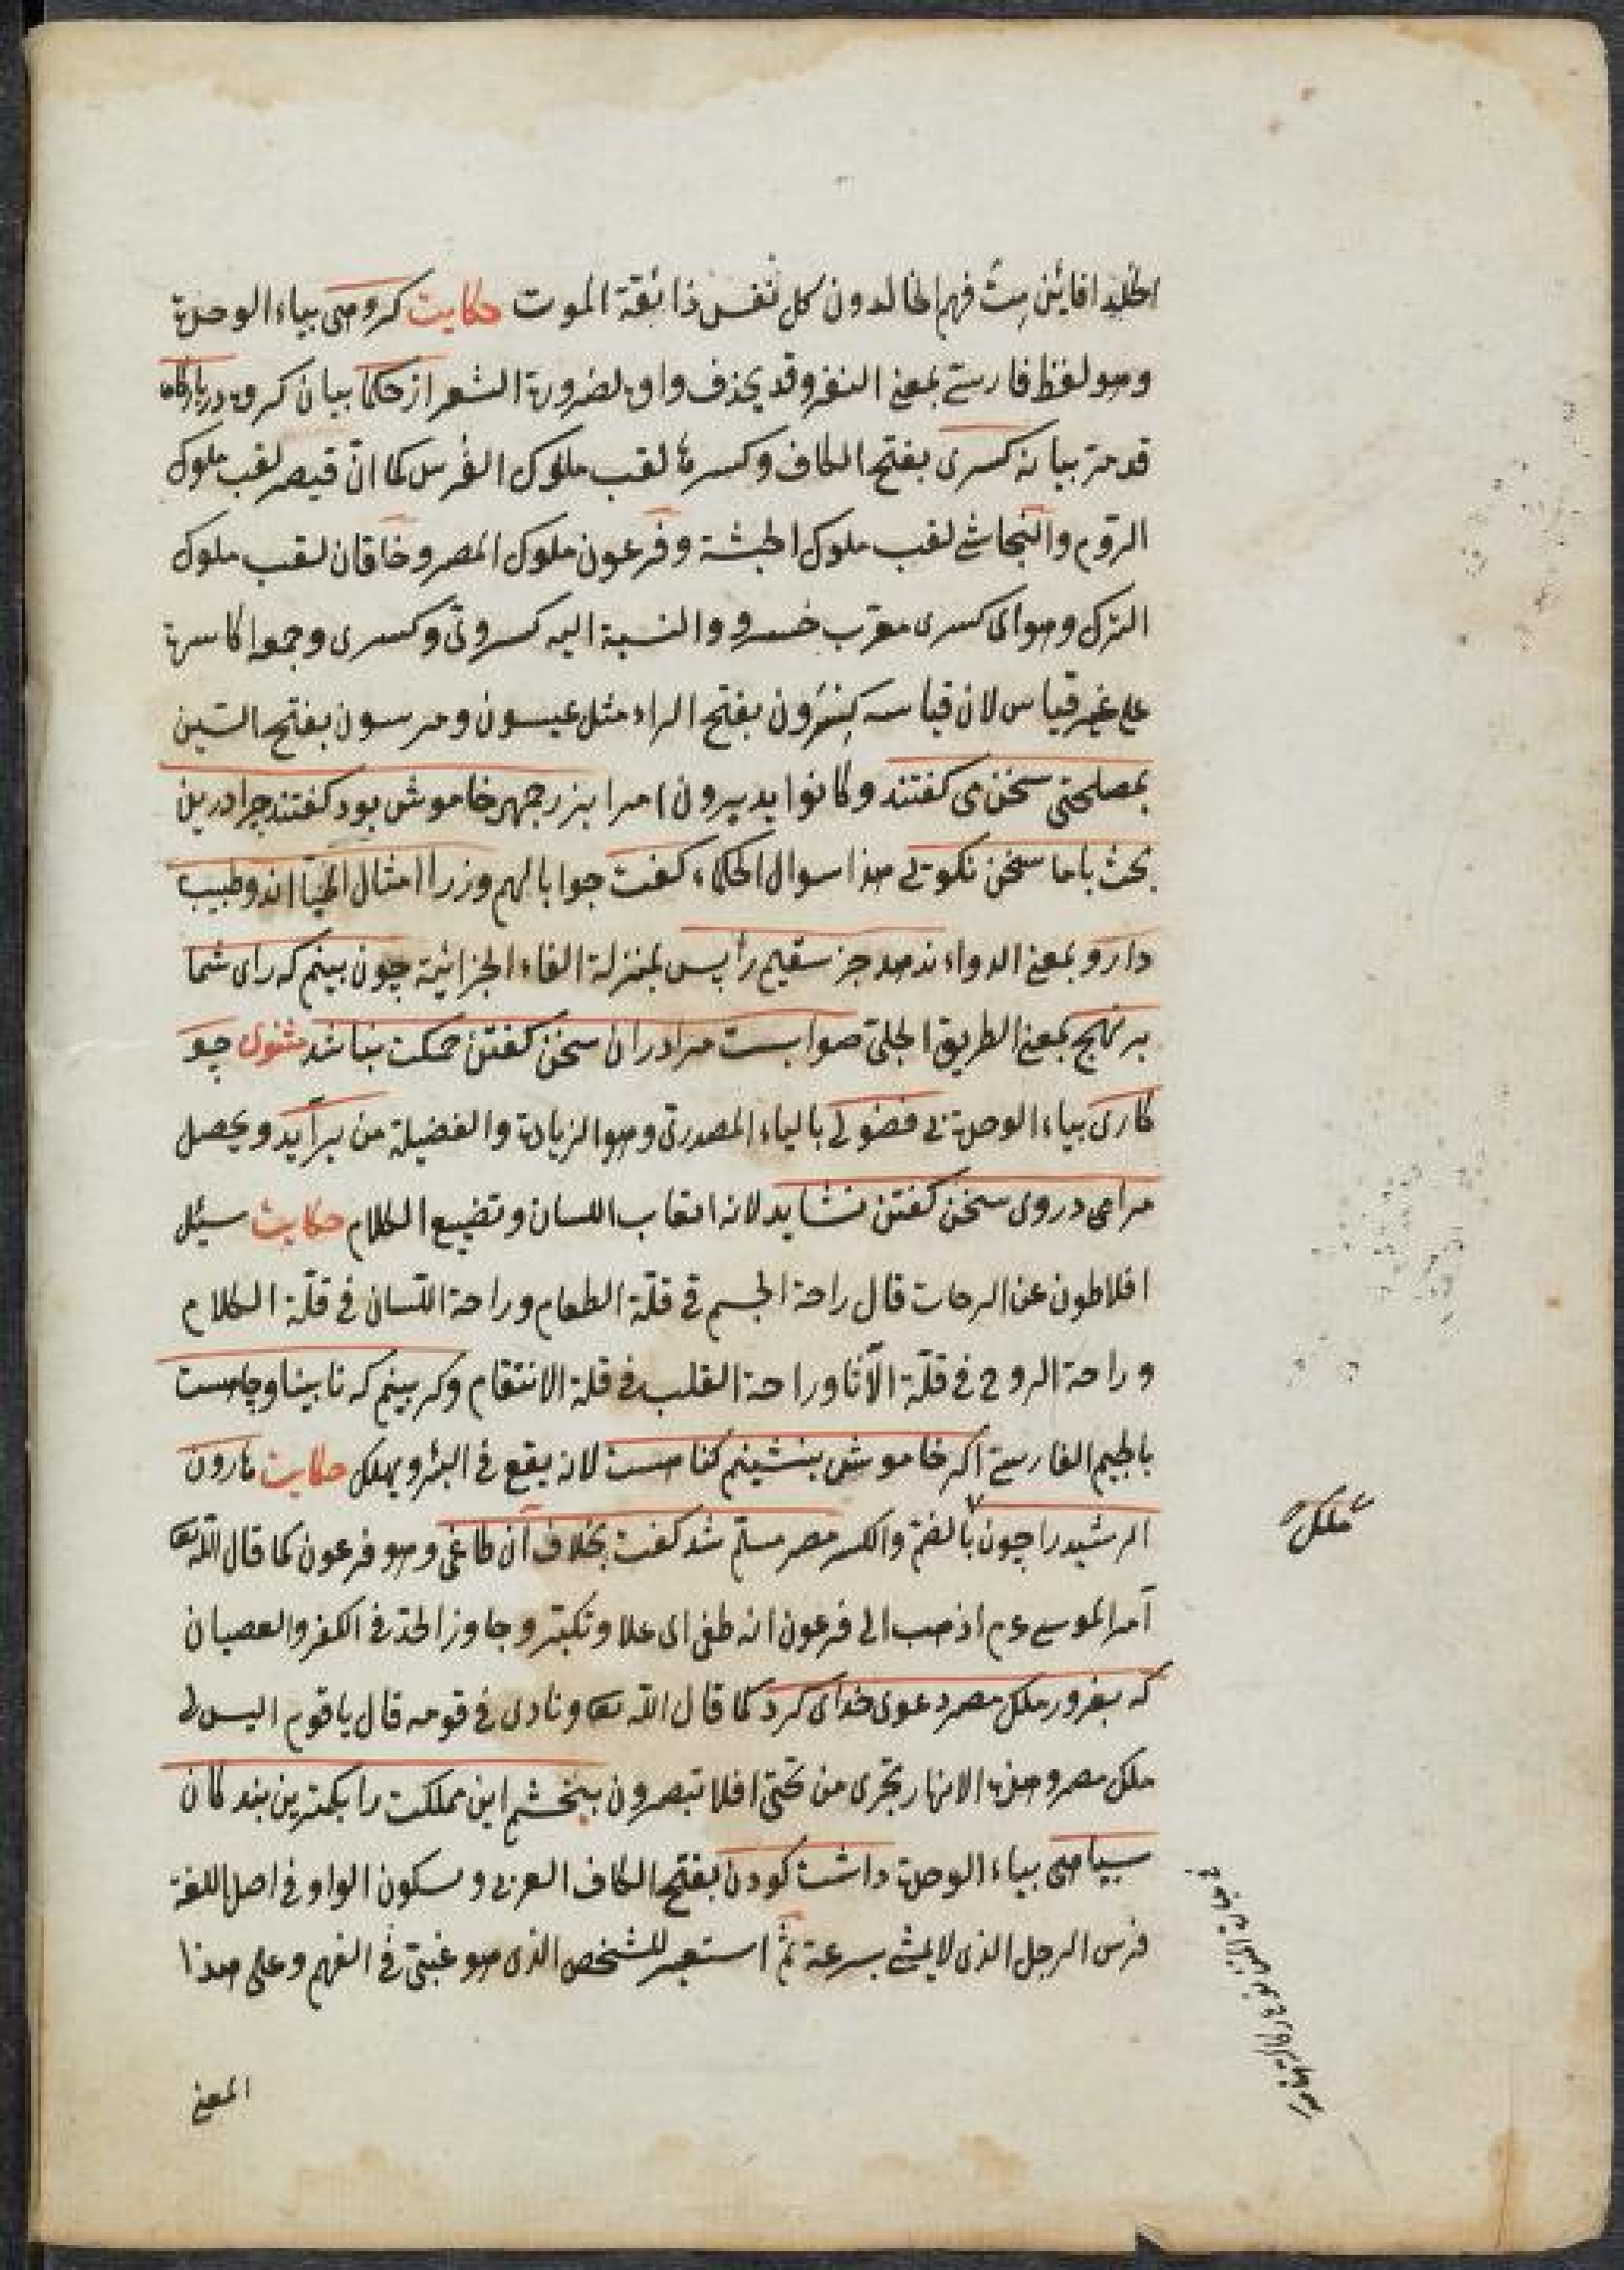 الخلد افائن مت فهم الخالدون كل نفس ذائقة الموت حكايت كروهى بياء الوحدة
وهو لفظ فارسي بمعنى النفر وقد يحذف واوه لضرورة الشعر از حكما بيان كروه در بارگاه
قد مر بيانه كسرى بفتح الكاف وكسرها لقب ملوك الفرس كما انّ قيصر لقب ملوك
الروم والنجاشي لقب ملوك الحبشة وفرعون ملوك المصر وخاقان لقب ملوك
الترك وهو اى كسرى معرّب خسرو والنسبة اليه كسروىّ وكسرى وجمعه اكاسرة
على غير قياس لان قياسه كِسْرَوْن بفتح الراء مثل عيسون وموسون بفتح السّين
بمصلحتى سخن مى كفتند وكانوا يدبرون امرا بزرجمهر خاموش بود كفتند چرا درين
بحث با ما سخن نكويى هذا سؤال الحكماء كفت جوابا لهم وزرا امثال اطبّا اند وطبيب
دارو بمعنى الدواء ندهد جز سقيم را پس بمنزلة الفاء الجزائية چون بينم كه راى شما
بر نهج بمعنى الطريق الجلىّ صوابست مرا دران سخن كفتن حكمت نباشد مثنوى چو
كارى بياء الوحدة بى فضولى بالياء المصدرىّ وهو الزيادة والفضيلة من برآيد ويحصل
مرامى در وى سخن كفتن نشايد لانه اتعاب اللسان وتضييع الكلام حكايت سئل
افلاطون عن الرحات قال راحة الجسم فى قلّة الطعام وراحة اللّسان فى قلّة الكلام
وراحة الروح فى قلّة الآثا وراحة القلب فى قلة الانتقام وكر بينم كه نابينا وچاهست
بالجيم الفارسي اكر خاموش بنشينم كناهست لانه يقع فى البئر ويهلك حكايت هارون
الرشيد را چون بالضم والكسر مصر مسلّم شد كفت بخلاف آن طاغى وهو فرعون كما قال اللّه تعا
آمرا لموسى عم اذهب الى فرعون انه طغى اى علا وتكبّر وجاوز الحدّ فى الكفر والعصيان
كه بغرور ملك مصر دعوى خداى كرد كما قال اللّه تعا ونادى فى قومه قال يا قوم اليس لى
ملك مصر وهذه الانهار تجرى من تحتى افلا تبصرون نبخشم اين مملكت را بكمترين بندكان
سياهى بياء الوحدة داشت كودن بفتح الكاف العربى وسكون الواو فى اصل اللغة
فرس الرجل الذى لا يمشى بسرعة ثمّ استعير للشخص الذى هو غبىّ فى الفهم وعلى هذا
المعنى
ملك